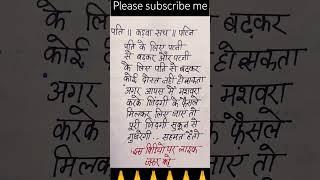 Please subscribe me
पति ॥ कडवा सच ॥ पत्नि
पति के लिए पत्नी
से बढ़कर और पत्नी
के लिए पति से बढ़कर
कोई दोस्त नहीं हो सकता
अगर आपस में मशवरा
करके जिंदगी के फैसले
मिलकर लिए जाए तो
पूरी जिंदगी सुकून से
गुजरेगी... सहमत हैतो
इस विडियो पर लाइक
जरूर करे